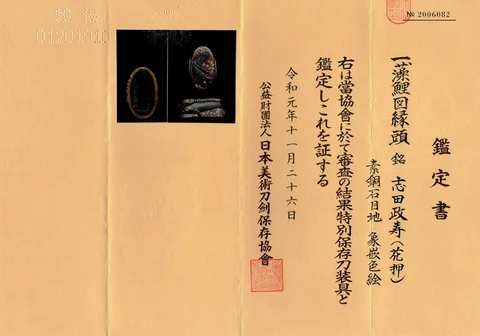 № 2006082
鑑定書
一、藻鯉図縁頭 銘 志田政寿(花押)
素銅石目地 象嵌色絵
右は當協會に於て審査の結果特別保存刀装具と
鑑定しこれを証する
令和元年十一月二十六日
公益財團法人 日本美術刀劍保存協會